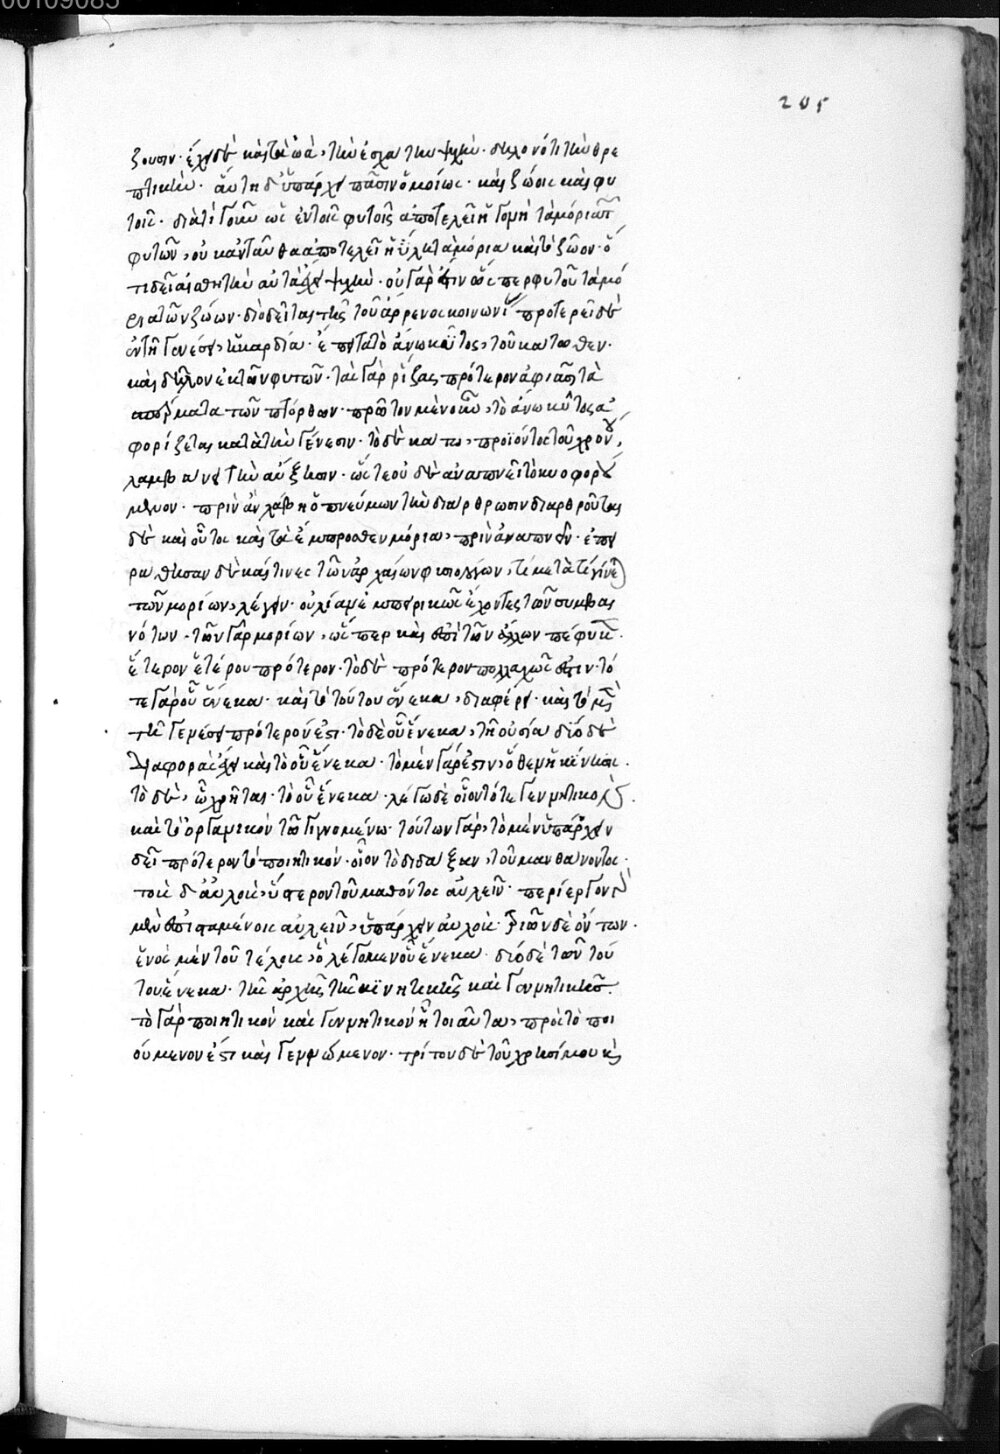 00109085
205
ξουσιν· ἔχει δὲ καὶ τὰ ὠὰ, τὴν ἐσχάτην ψυχὴν· δηλονότι τὴν θρε
πτικὴν· αὕτη δ' ὑπάρχει πᾶσιν ὁμοίως· καὶ ζώοις καὶ φυ
τοῖς· διατί γοῦν ὡς ἐν τοῖς φυτοῖς ἀποτελεῖ ἡ γονὴ τὰ μόρια τῶν
φυτῶν, οὐ κἀνταῦθα ἀποτελεῖ ἡ ὕλη τὰ μόρια καὶ τὸ ζῶον· ὅ
τι δεῖ αἰσθητικὴν αὐτὰ ἔχειν ψυχὴν· οὐ γάρ ἐστιν ὥσπερ φυτοῦ τὰ μό
ρια τῶν ζώων· διὸ δεῖται τῆς τοῦ ἄρρενος κοινωνίας προτερεῖ δὲ
ἐν τῇ γενέσει, ἡ καρδία· ἔπειτα τὸ ἄνω κῦτος, τοῦ κάτωθεν·
καὶ δῆλον ἐκ τῶν φυτῶν· τὰς γὰρ ῥίζας πρότερον ἀφιᾶσι τὰ
σπέρματα τῶν πτόρθων· πρῶτον μὲν οὖν, τὸ ἄνω κῦτος ἀ
φορίζεται κατὰ τὴν γένεσιν· τὸ δὲ κάτω, προϊόντος τοῦ χρόνου,
λαμβάνει τὴν αὔξησιν· ὥστε οὐδὲ ἀναπνεῖ τὸ κυοφορού
μενον· πρὶν ἂν λάβῃ ὁ πνεύμων τὴν διάρθρωσιν διαρθροῦται
δὲ καὶ οὗτος καὶ τὰ ἔμπροσθεν μόρια, πρὶν ἀναπνεῖν· ἐπει
ράθησαν δὲ καί τινες τῶν ἀρχαίων φυσιολόγων, τί μετὰ τί γίνεται
τῶν μορίων, λέγειν· οὐ λίαν ἐμπειρικῶς ἔχοντες τῶν συμβαι
νόντων· τῶν γὰρ μορίων, ὥσπερ καὶ ἐπὶ τῶν ἄλλων πέφυκεν
ἕτερον ἑτέρου πρότερον· τὸ δὲ πρότερον πολλαχῶς ἐστιν· τό
τε γὰρ οὗ ἕνεκα· καὶ τὸ τούτου ἕνεκα, διαφέρει· καὶ τὸ μὲν
τῇ γενέσει πρότερόν ἐστι· τὸ δὲ οὗ ἕνεκα, τῇ οὐσίᾳ δύο δὲ
διαφορὰς ἔχει καὶ τὸ οὗ ἕνεκα· τὸ μὲν γάρ ἐστιν, ὅθεν ἡ κίνησις·
τὸ δὲ, ᾧ χρῆται· τὸ οὗ ἕνεκα· λέγω δὲ οἷον τό τε γεννητικὸν,
καὶ τὸ ὀργανικὸν τῷ γιγνομένῳ· τούτων γὰρ, τὸ μὲν ὑπάρχειν
δεῖ πρότερον τὸ ποιητικόν· οἷον τὸ διδάξαν, τοῦ μανθάνοντος·
τοὺς δ' αὐλοὺς, ὕστερον τοῦ μαθόντος αὐλεῖν· περίεργον γὰρ
μὴ ἐπισταμένοις αὐλεῖν, ὑπάρχειν αὐλοὺς· τριῶν δὲ ὄντων·
ἑνὸς μὲν τοῦ τέλους, ὃ λέγομεν οὗ ἕνεκα· δύο δὲ τῶν τού
του ἕνεκα· τῆς ἀρχῆς τῆς κινητικῆς καὶ γεννητικῆς·
τὸ γὰρ ποιητικὸν καὶ γεννητικὸν ᾗ τοιαῦτα, πρὸς τὸ ποι
ούμενόν ἐστι καὶ γεννώμενον· τρίτον δὲ τοῦ χρησίμου καὶ